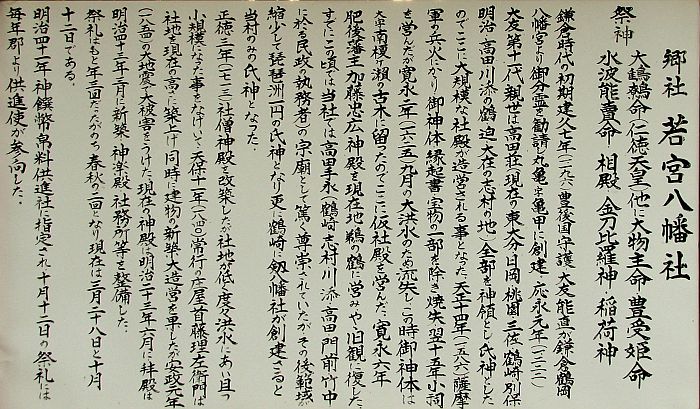 郷社 若宮八幡社
祭神
大鷦鷯命(仁徳天皇)他に大物主命 豊受姫命
水波能賣命・相殿 金刀比羅神・稲荷神
鎌倉時代の初期建久七年(一一九六)豊後国守護 大友能直が鎌倉鶴岡
八幡宮より御分霊を勧請、丸亀字亀甲に創建、応永元年(一三
大友第十一代親世は高田荘(現在の東大分 日岡 桃園 三佐 鶴崎 別保
明治 高田 川添の鶴迫 大在の志村の地)全部を神領とし氏神とした
のでここに大規模な社殿が造営される事となった。天正十四年(一五八六)薩摩
軍の兵火にかかり 御神体 縁起書 宝物の一部を除き焼失 翌十五年小祠
を営んだが寛永二年(一六二五)九月の大洪水のため流失しこの時御神体は
大字南榎ヶ瀬の古木に留ったのでここに仮社殿を営んだ、寛永六年
肥後藩主加藤忠広神殿を現在地鵜の鶴に営みやゝ旧観に復した、
すでにこの頃では当社では高田手永(鶴崎 志村 川添 高田 門前 竹中
に於る民政の執務者)の宗廟として篤く尊崇されていたがその後範域が
縮少して琵琶洲一円の氏神となり更に鶴崎に剱八幡社が創建さると
当村のみの氏神となった。
正徳三年(一七一三)社僧神殿を改築したが社地が低く度々洪水にあい且つ
小規模になった事をなげいて天保十一年(一八四〇)常行の庄屋首藤理左衛門は
社地を現在の高さに築上げ同時に建物の新築大造営を果したが安政元年
(一八五四)の大地震で大被害をうけた、現在の神殿は明治二十三年六月に拝殿は
明治四十三年三月に新築、神楽殿 社務所等を整備した、
祭礼はもと年三回だったがのち春秋の二回となり現在は三月二十八日と十月
十二日である。
明治四十一年神饌幣帛料供進社に指定され十月十二日の祭礼には
毎年郡より供進使が参向した、